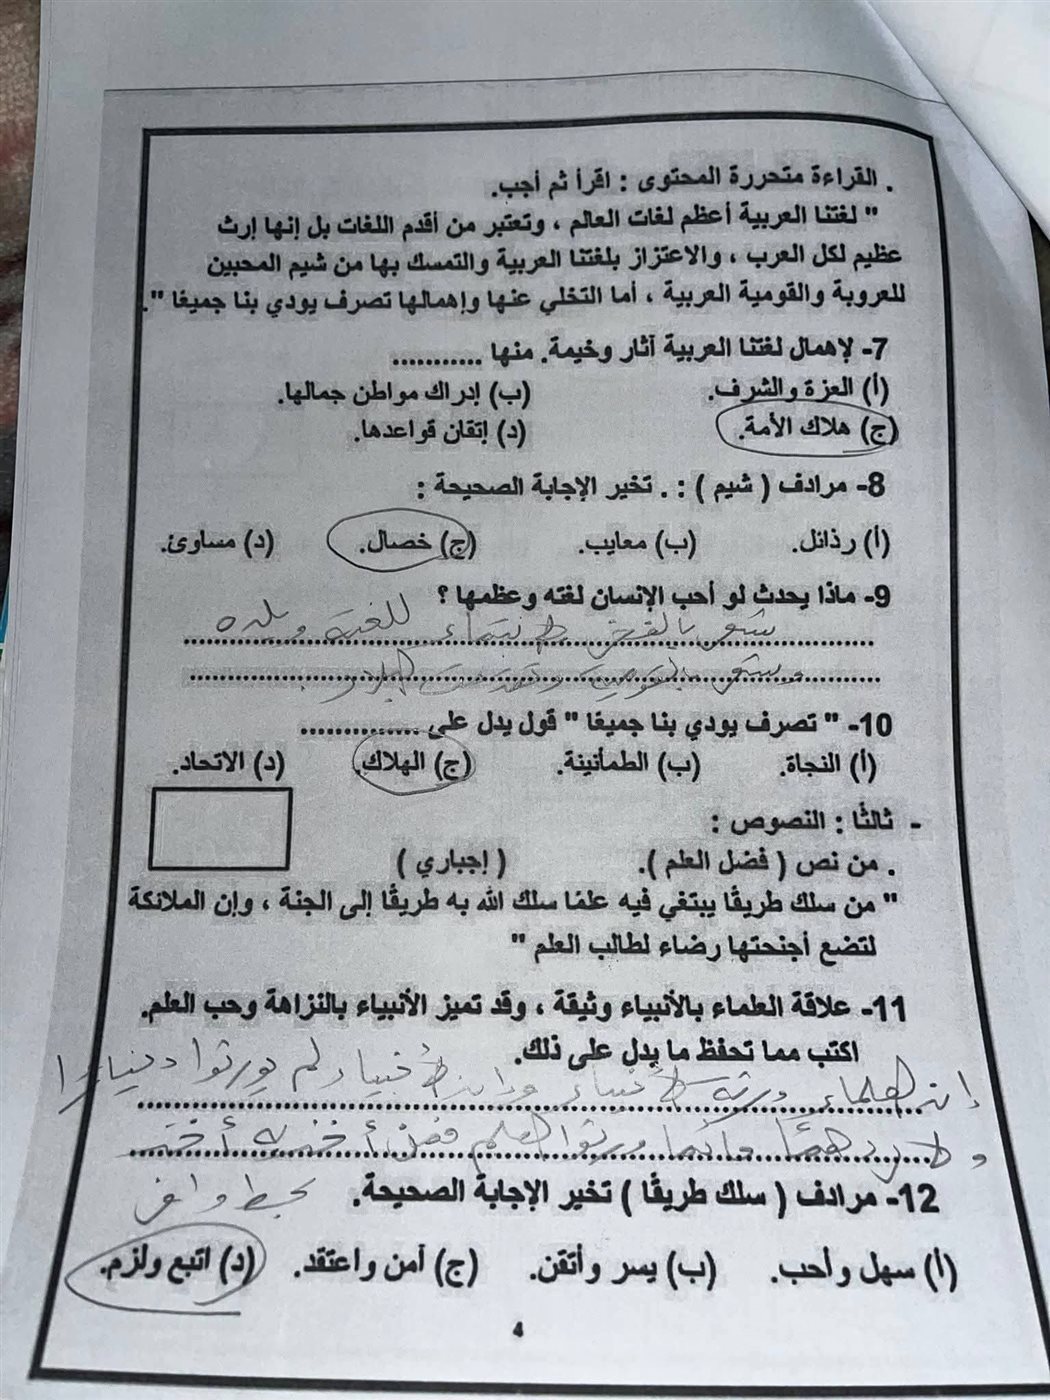 . القراءة متحررة المحتوى : اقرأ ثم أجب.
" لغتنا العربية أعظم لغات العالم ، وتعتبر من أقدم اللغات بل إنها إرث
عظيم لكل العرب ، والاعتزاز بلغتنا العربية والتمسك بها من شيم المحبين
للعروبة والقومية العربية ، أما التخلي عنها وإهمالها تصرف يودي بنا جميعًا ".
7- لإهمال لغتنا العربية آثار وخيمة. منها ...........
(أ) العزة والشرف. (ب) إدراك مواطن جمالها.
(ج) هلاك الأمة. (د) إتقان قواعدها.
8- مرادف ( شيم ) : . تخير الإجابة الصحيحة :
(أ) رذائل. (ب) معايب. (ج) خصال. (د) مساوئ.
9- ماذا يحدث لو أحب الإنسان لغته وعظمها ؟
بالفخر والانتماء للغته وبلده
10- " تصرف يودي بنا جميعًا " قول يدل على ..............
(أ) النجاة. (ب) الطمأنينة. (ج) الهلاك. (د) الاتحاد.
- ثالثًا : النصوص :
. من نص ( فضل العلم ). ( إجباري )
" من سلك طريقًا يبتغي فيه علمًا سلك الله به طريقًا إلى الجنة ، وإن الملائكة
لتضع أجنحتها رضاء لطالب العلم "
11- علاقة العلماء بالأنبياء وثيقة ، وقد تميز الأنبياء بالنزاهة وحب العلم.
اكتب مما تحفظ ما يدل على ذلك.
إن العلماء ورثة الأنبياء وإن الأنبياء لم يورثوا دينارا
ولا درهمًا وإنما ورثوا العلم فمن أخذه أخذ
بحظ وافر
12- مرادف ( سلك طريقًا ) تخير الإجابة الصحيحة.
(أ) سهل وأحب. (ب) يسر وأتقن. (ج) آمن واعتقد. (د) اتبع ولزم.
4